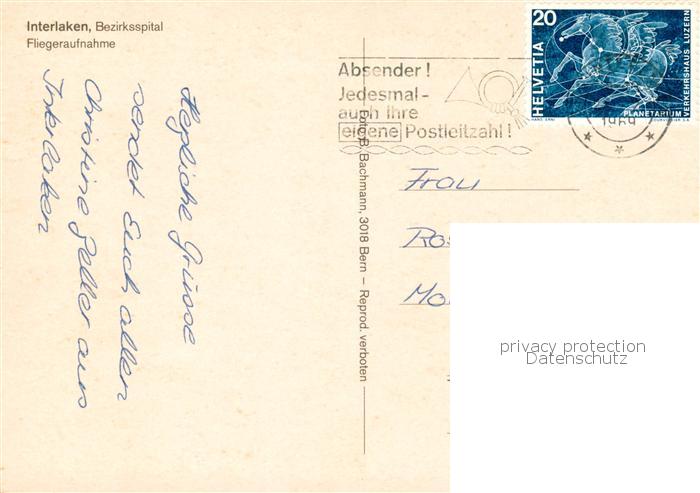 Interlaken, Bezirksspital
Fliegeraufnahme
Herzliche Grüsse
sendet Euch allen
Christine Geller aus
Interlaken
Foto B. Bachmann, 3018 Bern – Reprod. verboten
Absender!
Jedesmal-
auch Ihre
eigene Postleitzahl!
1969
20
HELVETIA
PLANETARIUM
VERKEHRSHAUS LUZERN
HANS ERNI
COURVOISIER S.A.
Frau
privacy protection
Datenschutz